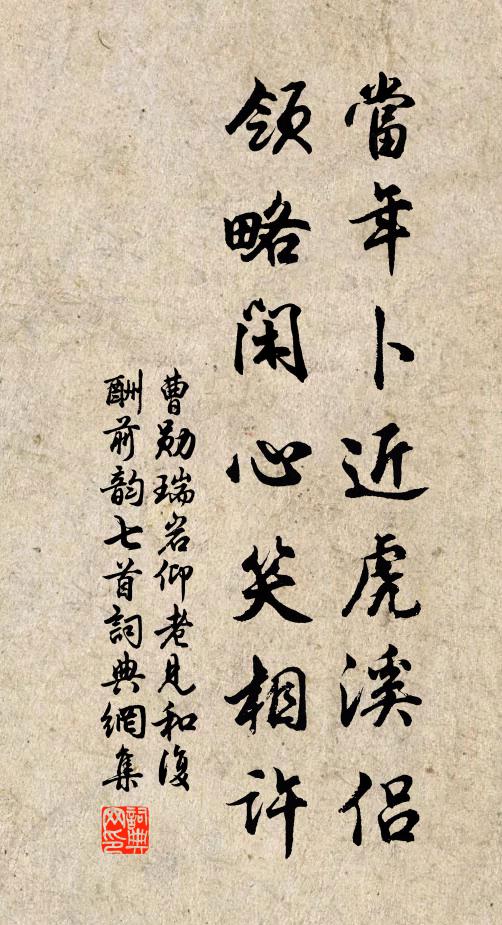 當年卜近虎溪侣
領略閑心笑相許
曹勛瑞岩仰老見和復
酬前韵七首詞典網集
詞典網印